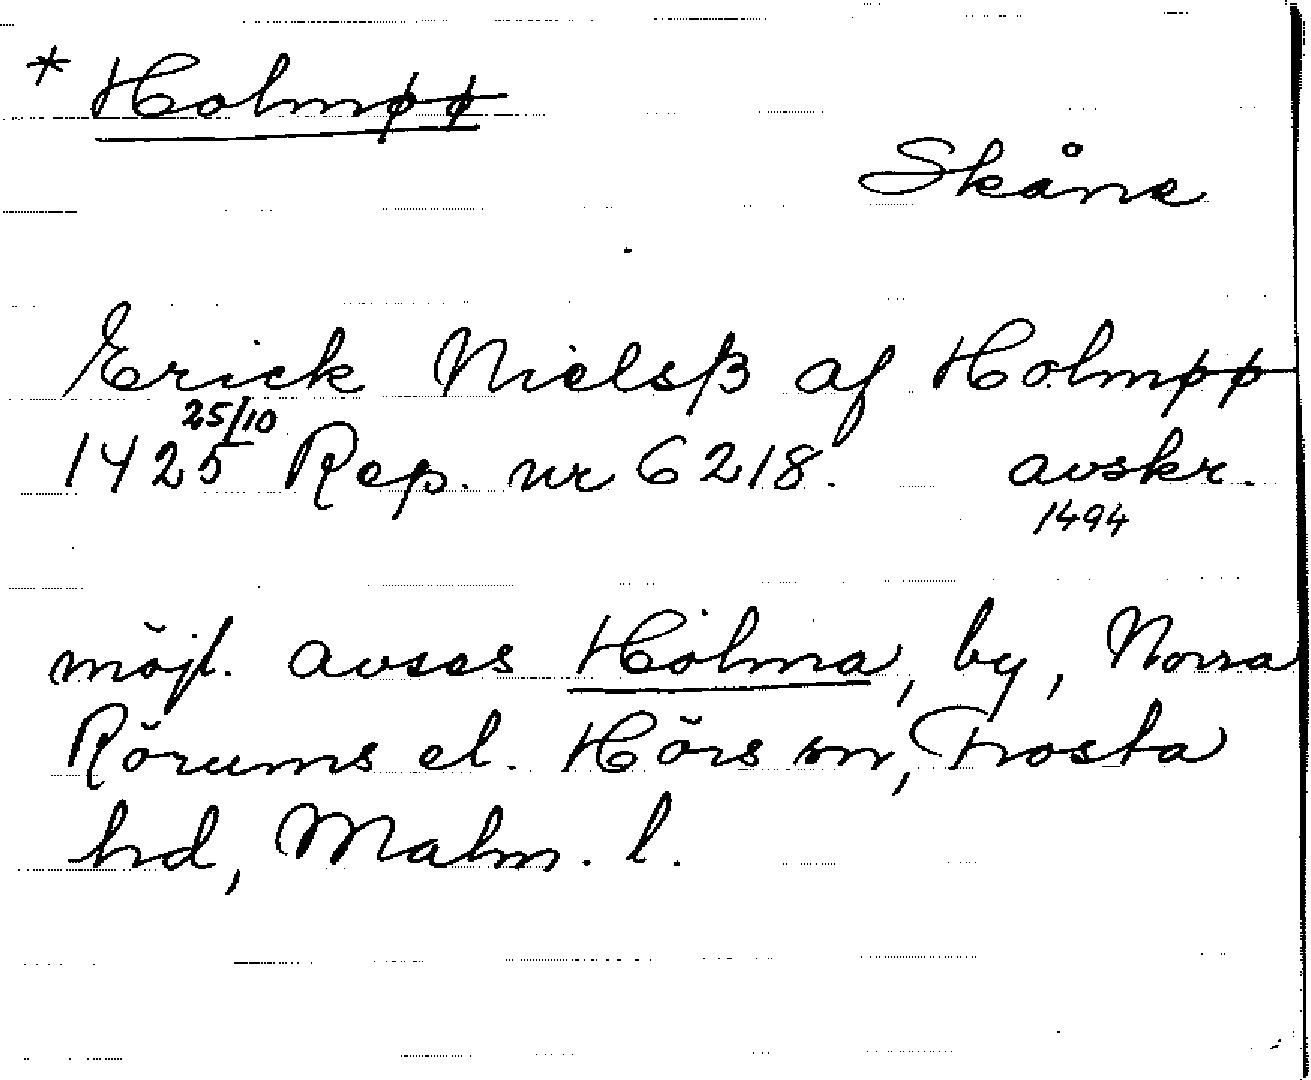 * Holmøø
Skåne
Erick Nielsß af Holmøø
25/10
1425 Rep. nr 6218. avskr.
1494
möjl. avses Holma, by, Norra
Rörums el. Hörs sn, Frosta
hd, Malm. l.